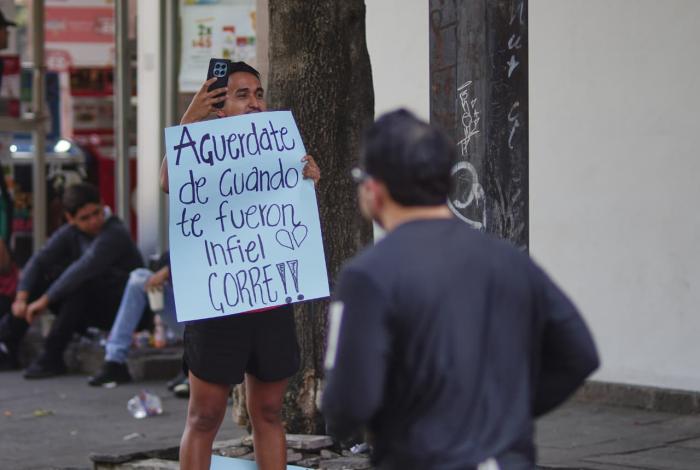 Aguerdate
de Cuándo
te fueron
Infiel
CORRE!!